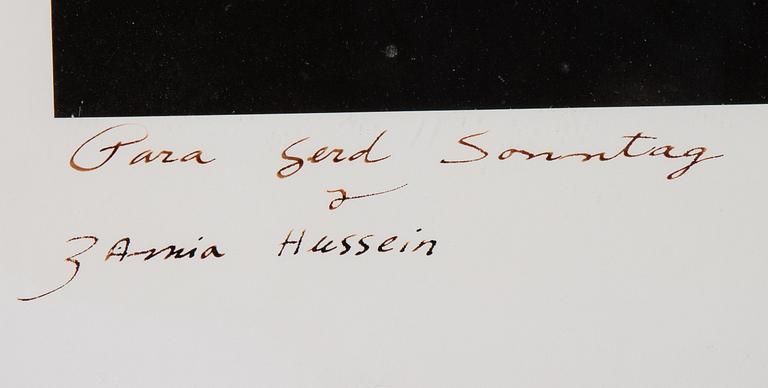 Para Gerd Sonntag
y
Zamia Hussein